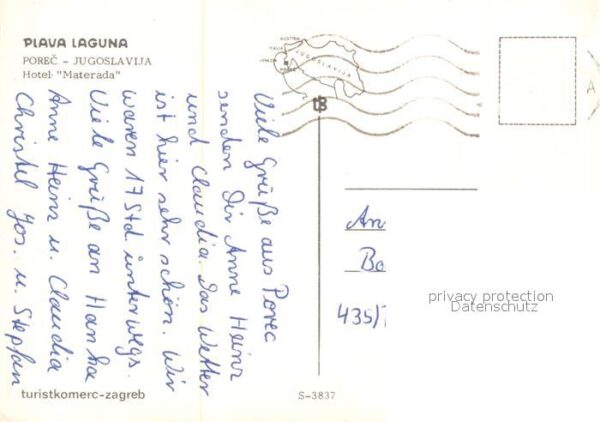 PLAVA LAGUNA
POREČ – JUGOSLAVIJA
Hotel "Materada"
Viele Grüße aus Porec
senden Dir Anne Heinz
und Claudia. Das Wetter
ist hier sehr schön. Wir
waren 17 Std. unterwegs.
Viele Grüße an Hanka
Anne Heinz u. Claudia
Christel Jos. u. Stephan
JUGOSLAVIJA
An
Bo
435/
privacy protection
Datenschutz
turistkomerc-zagreb
S-3837